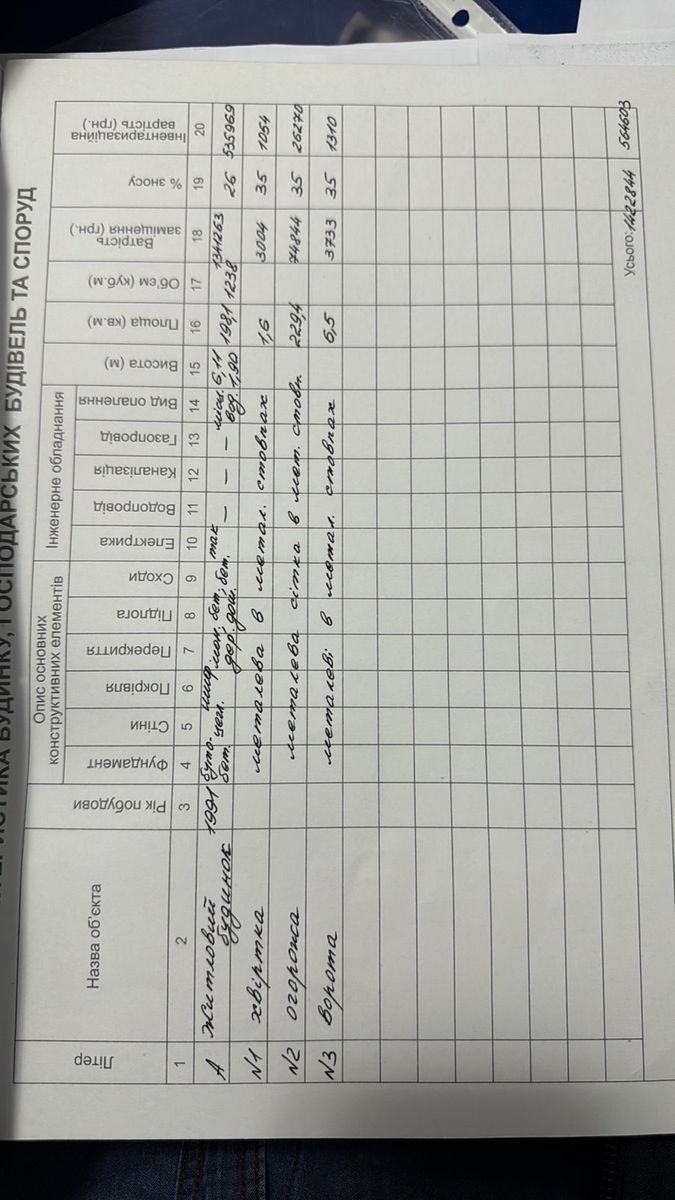 ТЕРИСТИКА БУДИНКУ, ГОСПОДАРСЬКИХ БУДІВЕЛЬ ТА СПОРУД
Літер
Назва об'єкта
Рік побудови
Опис основних
конструктивних елементів
Фундамент
Стіни
Покрівля
Перекриття
Підлога
Сходи
Інженерне обладнання
Електрика
Водопровід
Каналізація
Газопровід
Вид опалення
Висота (м)
Площа (кв.м)
Об'єм (куб.м)
Ватрість
заміщення (грн.)
% зносу
Інвентаризаційна
вартість (грн.)
1 2 3 4 5 6 7 8 9 10 11 12 13 14 15 16 17 18 19 20
А житловий 1991 буто. шиф мон. бет. бет. так – – – 6,11 198,1 1238 1341263 26 535969
будинок бет. цегл. дер. дощ. вод. 1,90
N1 хвіртка металева в метал. стовпах 1,6 3004 35 1054
N2 огорожа металева сітка в мет. стовп. 229,4 74844 35 26270
N3 ворота металеві в метал. стовпах 6,5 3733 35 1310
Усього: 1422844 564603